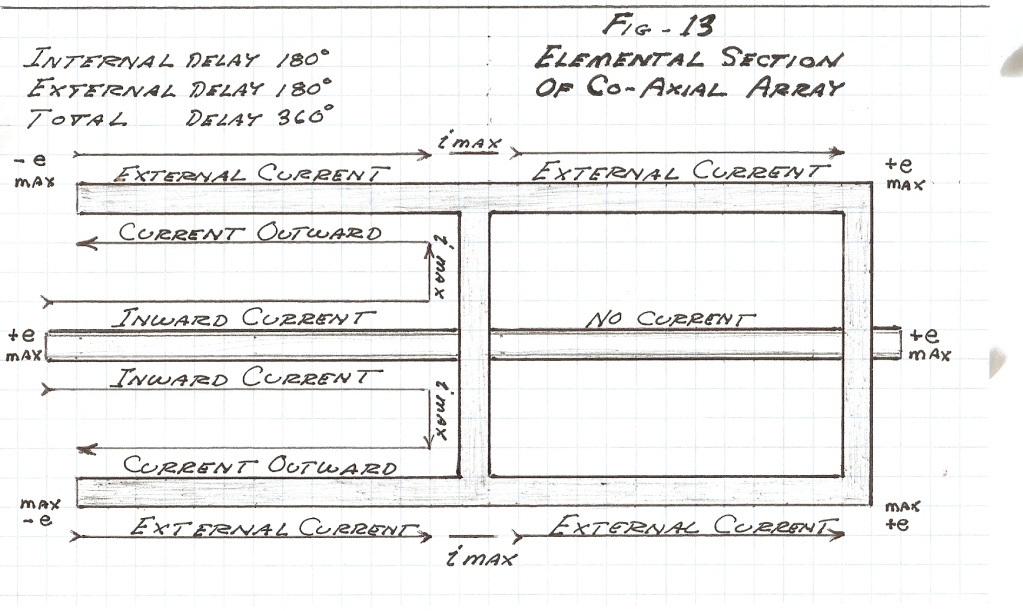 FIG-13
INTERNAL DELAY 180°
EXTERNAL DELAY 180°
TOTAL DELAY 360°
ELEMENTAL SECTION
OF CO-AXIAL ARRAY
i MAX
- e
MAX
EXTERNAL CURRENT
EXTERNAL CURRENT
+e
MAX
CURRENT OUTWARD
i MAX
INWARD CURRENT
NO CURRENT
+e
MAX
+e
MAX
INWARD CURRENT
i MAX
CURRENT OUTWARD
MAX
-e
MAX
+e
EXTERNAL CURRENT
EXTERNAL CURRENT
i MAX